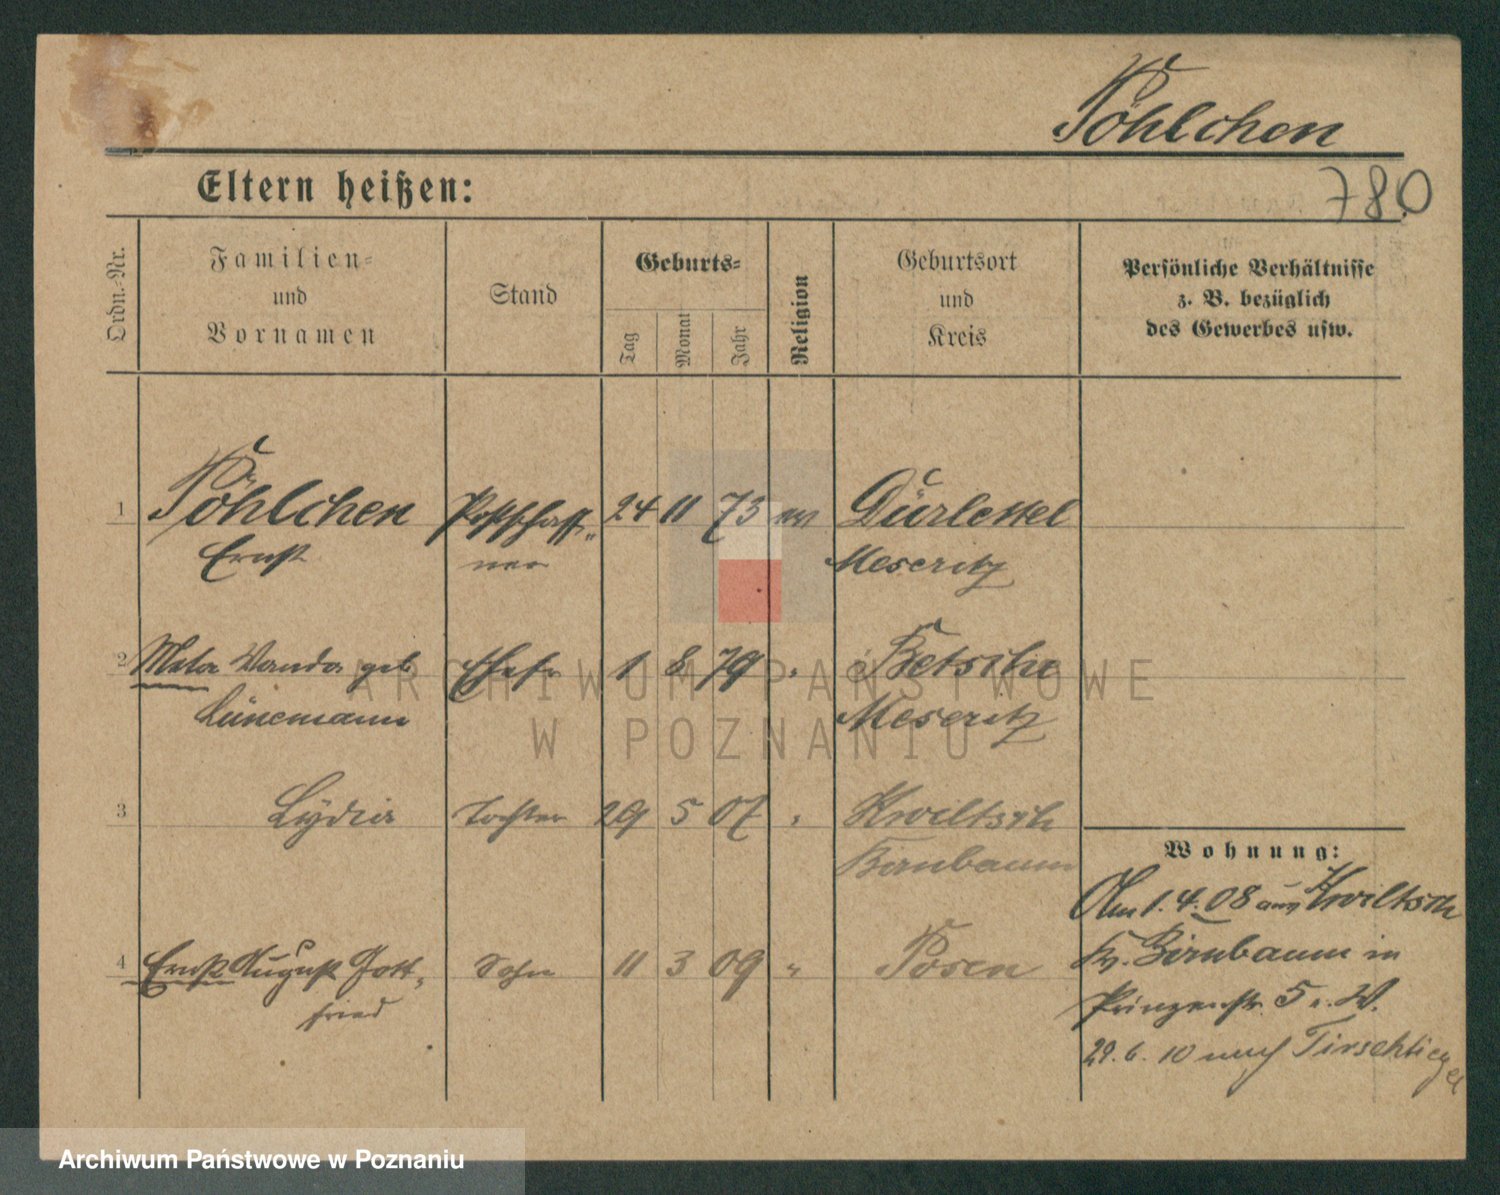 Pöhlchen
Eltern heißen:
780
Ordn.-Nr.
Familien-
und
Vornamen
Stand
Geburts-
Tag
Monat
Jahr
Religion
Geburtsort
und
Kreis
Persönliche Verhältnisse
z. B. bezüglich
des Gewerbes usw.
1 Pöhlchen Postschaff- 24 11 73 Dürlettel
Ernst ner Meseritz
2 Meta Wanda geb Ehefr 1 8 79 " Betsche
Lünemann Meseritz
3 Lydia Tochter 29 5 07 " Kwiltsch
Birnbaum
4 Ernst August Gott- Sohn 11 3 09 " Posen
fried
Wohnung:
Am 1.4.08 aus Kwiltsch
Kr. Birnbaum in
Prinzenstr. 5 b. W.
29.6.10 nach Tirschtiegel
ARCHIWUM PAŃSTWOWE
W POZNANIU
Archiwum Państwowe w Poznaniu